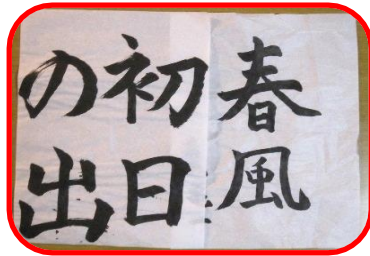 春風
初日
の出